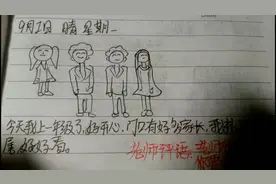 9月1日 晴 星期一
今天我上一年级了,好开心,门口有好多家长,我
属,好好看。
老师评语: